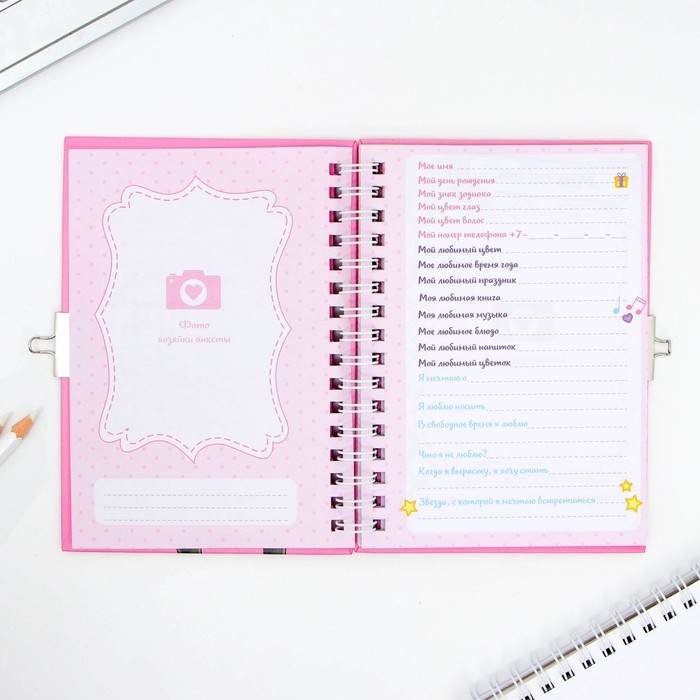 Фото
хозяйки анкеты
Мое имя
Мой день рождения
Мой знак зодиака
Мой цвет глаз
Мой цвет волос
Мой номер телефона +7-
Мой любимый цвет
Мое любимое время года
Мой любимый праздник
Моя любимая книга
Моя любимая музыка
Мое любимое блюдо
Мой любимый напиток
Мой любимый цветок
Я мечтаю о
Я люблю носить
В свободное время я люблю
Что я не люблю?
Когда я вырасту, я хочу стать
Звезда, с которой я мечтаю встретиться